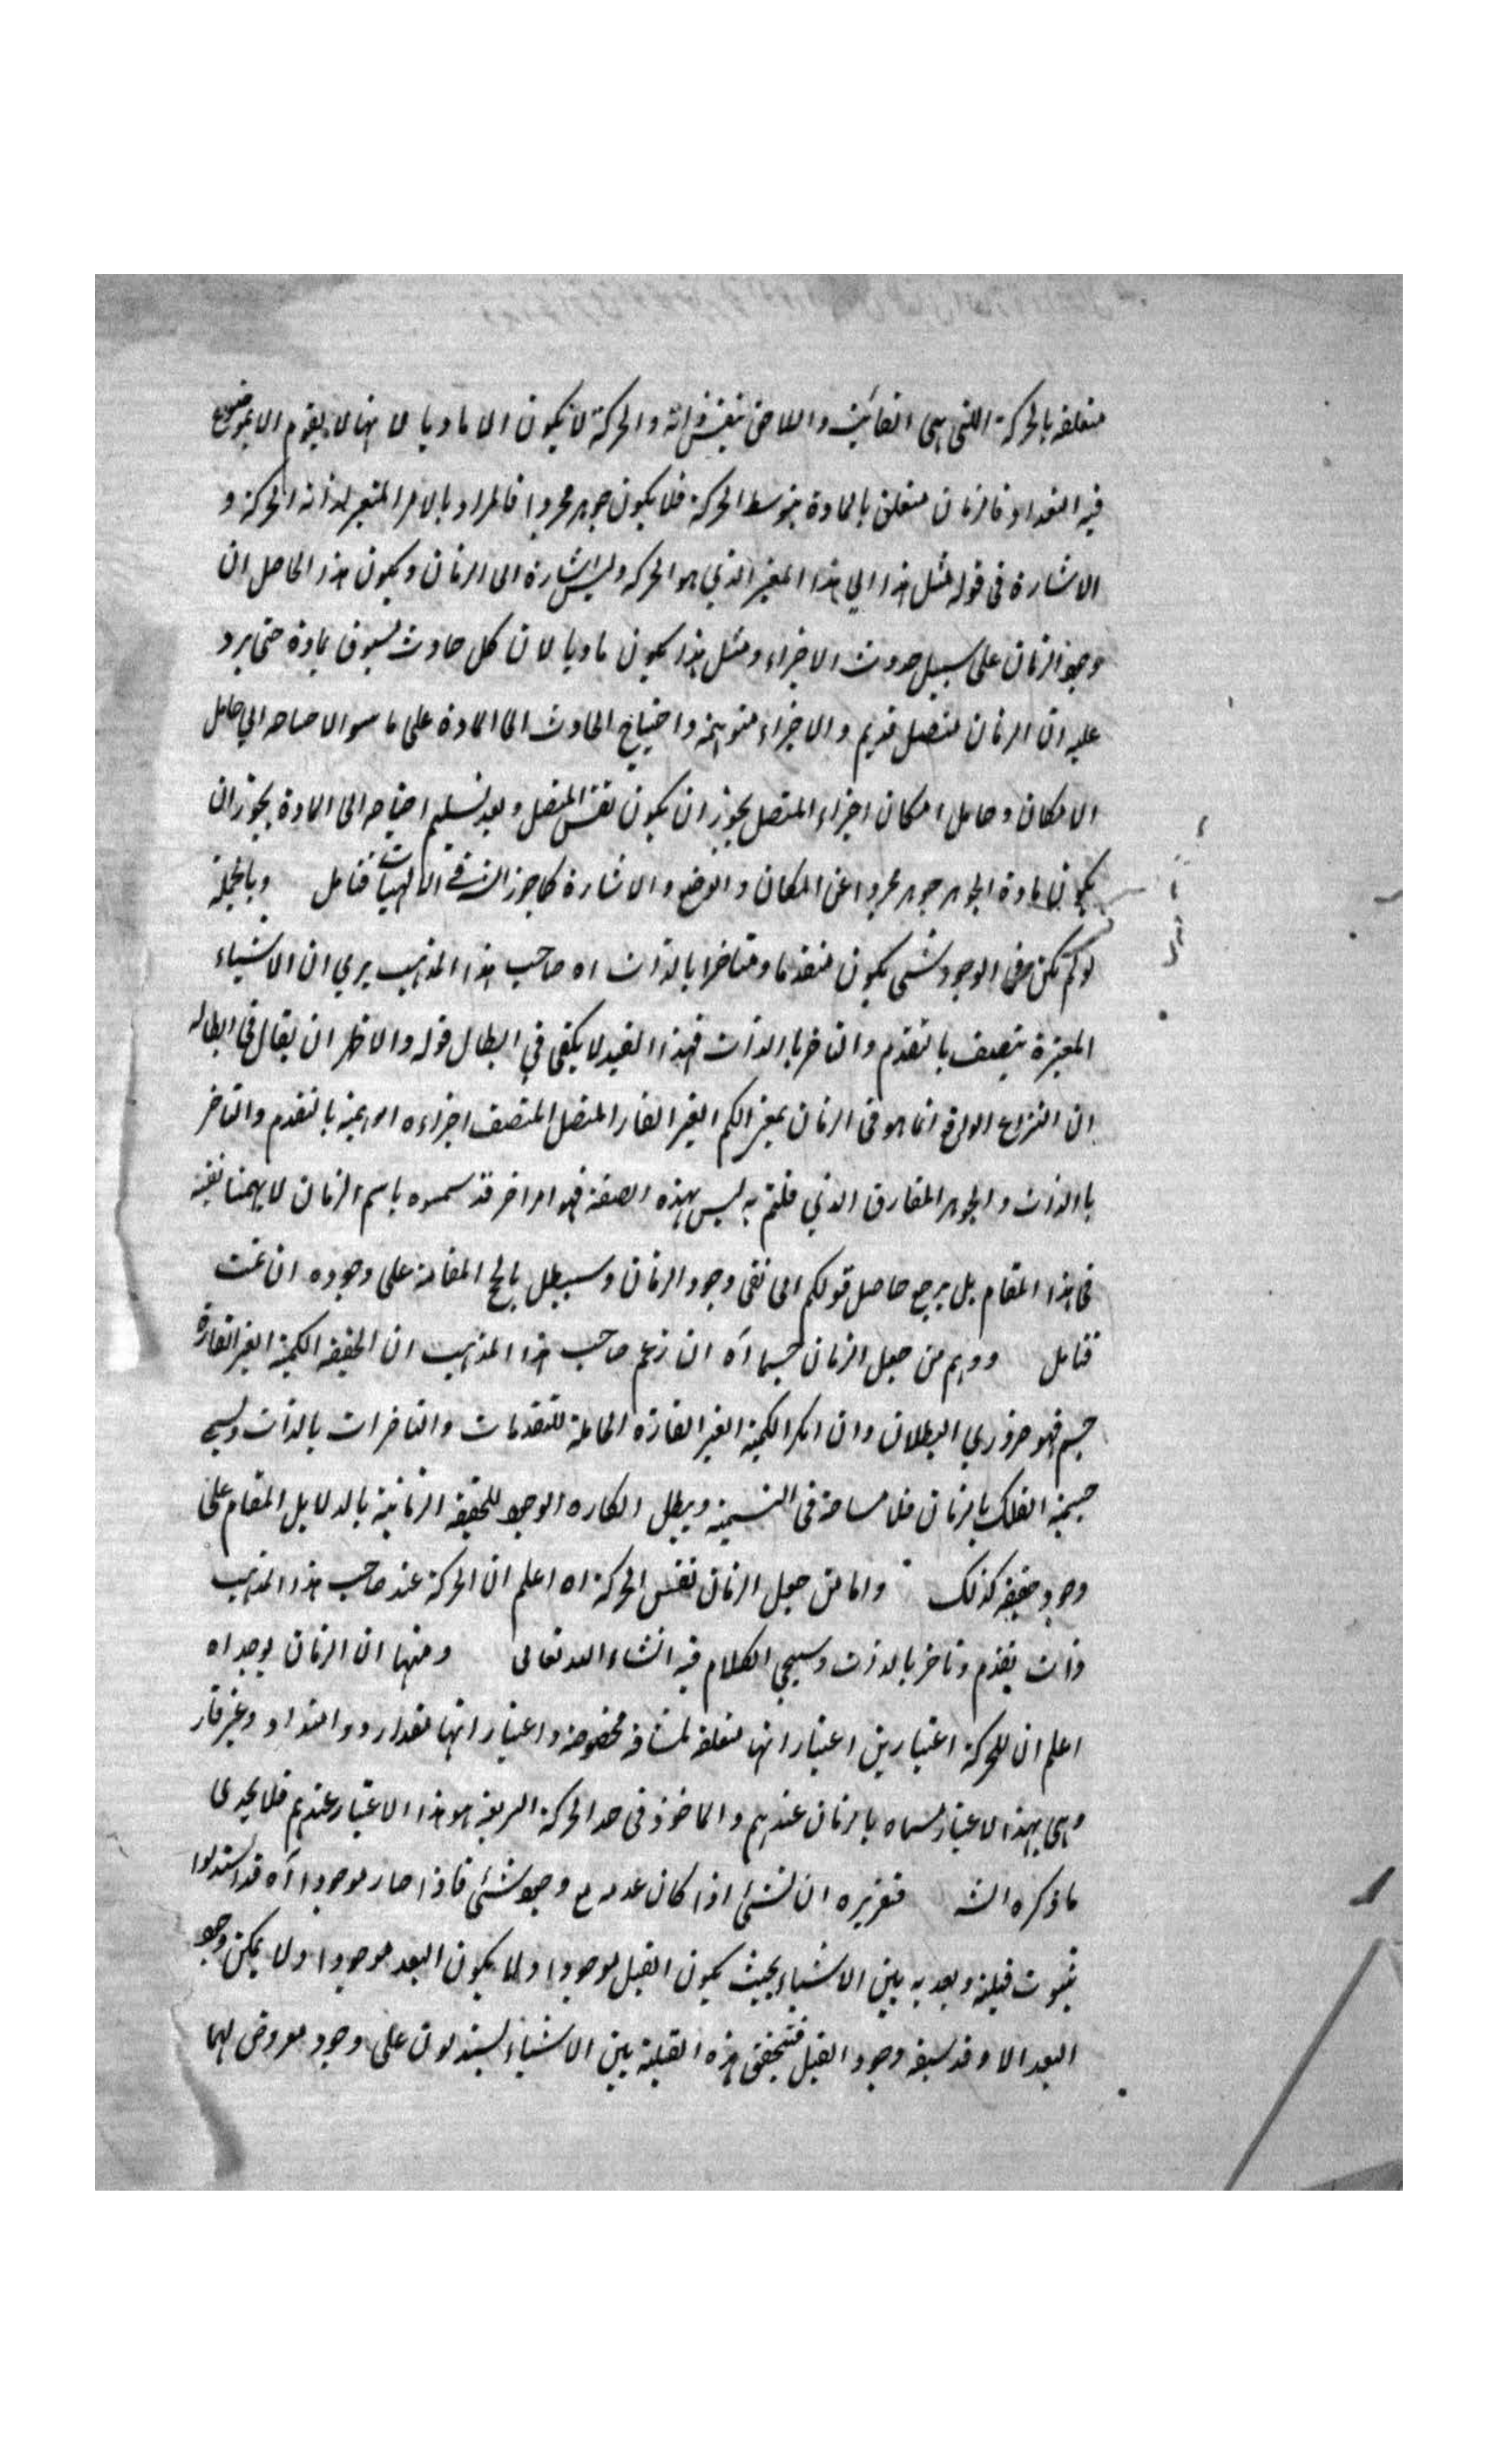 متعلقة بالحركة اللتي هي الفائت واللاحق بنفس ذاته والحركة لا يكون الا ماديا لانها لا يقوم الا بموضوع
فيه استعداد فالزمان متعلق بالمادة بتوسط الحركة فلا يكون جوهر مجردا فالمراد بالامر المتغير لذاته الحركة و
الاشارة في قوله مثل هذا الي هذا المتغير الذي هو الحركة وليس اشارة الى الزمان ويكون هذا الحاصل ان
وجود الزمان على سبيل حدوث الاجزاء ومثل هذا يكون ماديا لان كل حادث مسبوق بمادة حتى يرد
عليه ان الزمان متصل قديم والاجزاء متوهمة واحتياج الحادث الى المادة على ما هو الاحتياج الي حامل
الامكان وحامل امكان اجزاء المتصل يجوز ان يكون نفس المتصل وبعد تسليم احتياجه الى المادة يجوز ان
يكون مادة الجوهر جوهر مجردا عن المكان والوضع والاشارة كما جوز الشيخ في الالهيات فتامل وبالجملة
لو لم يكن في الوجود شئ يكون متقدما ومتاخرا بالذات اه صاحب هذا المذهب يري ان الاشياء
المتغيرة يتصف بالتقدم والتاخر بالذات فهذا القيد لا يكفي في ابطال قوله والاظهر ان يقال في ابطاله
ان النزاع الواقع انما هو في الزمان بمعنى الكم الغير القار المتصل المتصف اجزاءه الوهمية بالتقدم والتاخر
بالذات والجوهر المفارق الذي قلتم به ليس بهذه الصفة فهو امر اخر قد سموه باسم الزمان لا يهمنا نفيه
في هذا المقام بل يرجع حاصل قولكم الى نفي وجود الزمان وسيبطل بالحجج المقامة على وجوده ان تمت
فتامل ووهم من جعل الزمان جسما اه ان زعم صاحب هذا المذهب ان الحقيقة الكمية الغير القارة
جسم فهو ضروري البطلان وان انكر الكمية الغير القارة الحاملة للتقدمات والتاخرات بالذات ويسمي
جسمية الفلك بالزمان فلا مشاحة في التسمية ويبطل انكاره الوجود للحقيقة الزمانية بالدلايل المقام على
وجود حقيقة كذلك واما من جعل الزمان نفس الحركة اه اعلم ان الحركة عند صاحب هذا المذهب
ذات تقدم وتاخر بالذات وسيجي الكلام فيه انشاء الله تعالى ومنها ان الزمان يوجد اه
اعلم ان للحركة اعتبارين اعتبار انها متعلقة لمسافة مخصوصة واعتبار انها مقدار وامتداد وغير قار
وهي بهذا الاعتبار مسماه بالزمان عندهم والماخوذ في حد الحركة السريعة هو هذا الاعتبار عندهم فلا يجدى
ما ذكره الشـ فتقريره ان لشئ اذا كان عدمه مع وجود شئ فاذا صار موجودا اه قد استدلوا
بثبوت قبلية وبعدية بين الاشياء بحيث يكون القبل موجودا ولا يكون البعد موجودا ولا يمكن وجود
البعد الا وقد سبقه وجود القبل فتحقق هذه القبلية بين الاشياء يستدلون على وجود معروض لهما